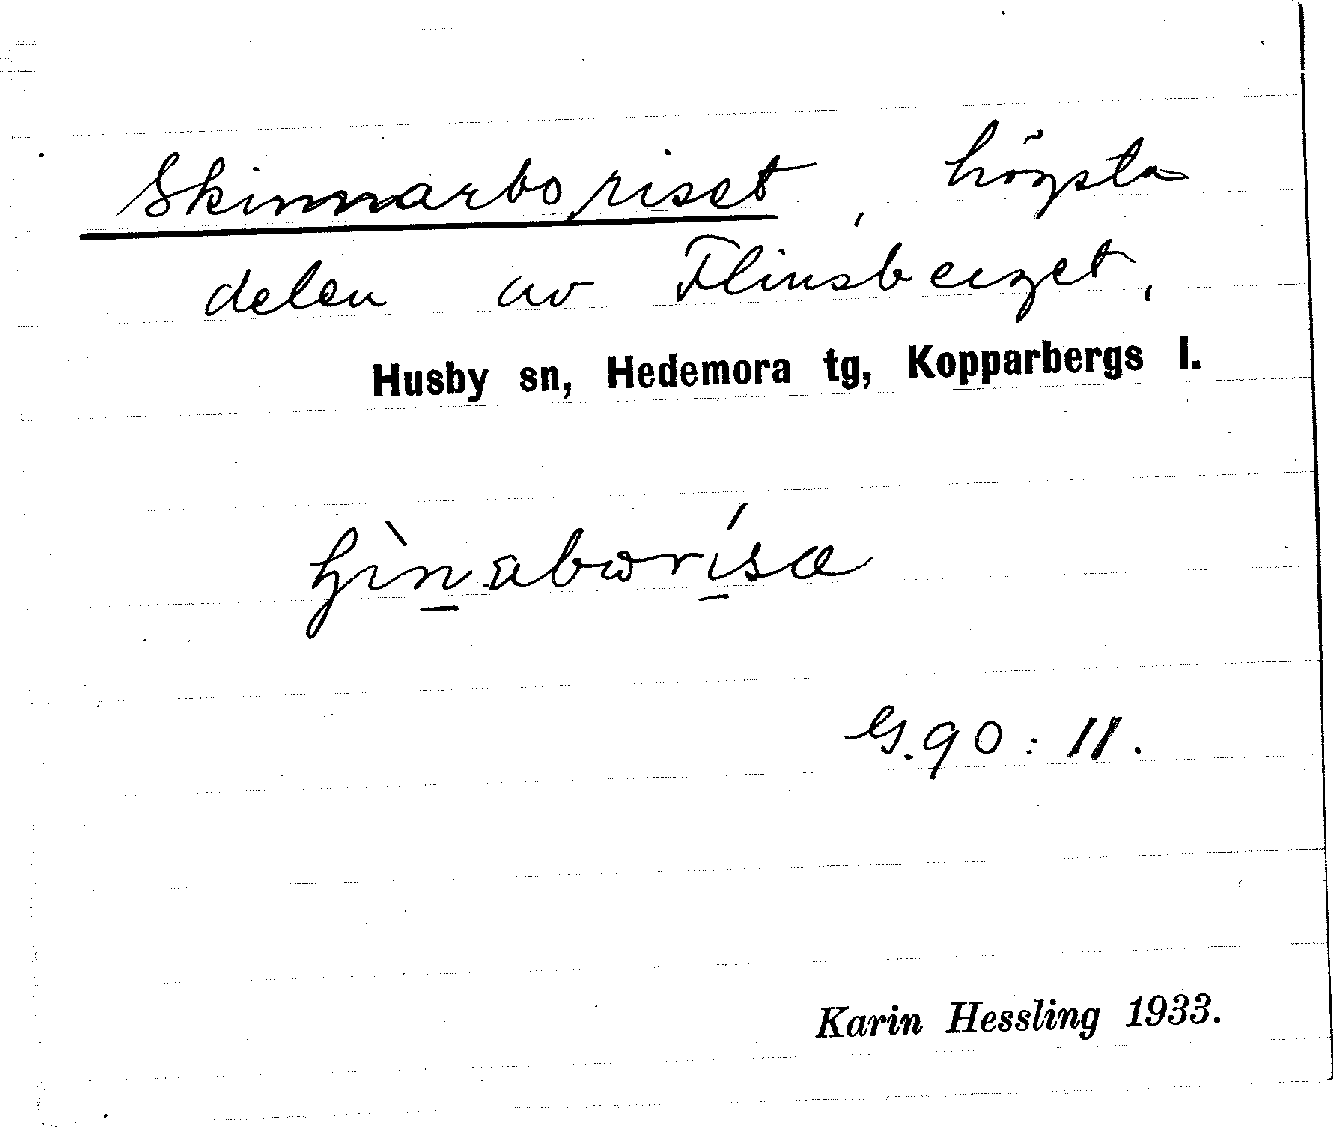 Skinnarboriset, högsta
delen av Flinsberget,
Husby sn, Hedemora tg, Kopparbergs l.
G. 90: 11.
Karin Hessling 1933.